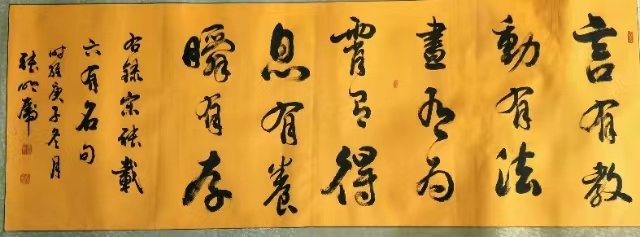 言有教
動有法
晝有为
宵有得
息有養
瞬有存
右錄宋張載
六有名句
时維庚子冬月
張